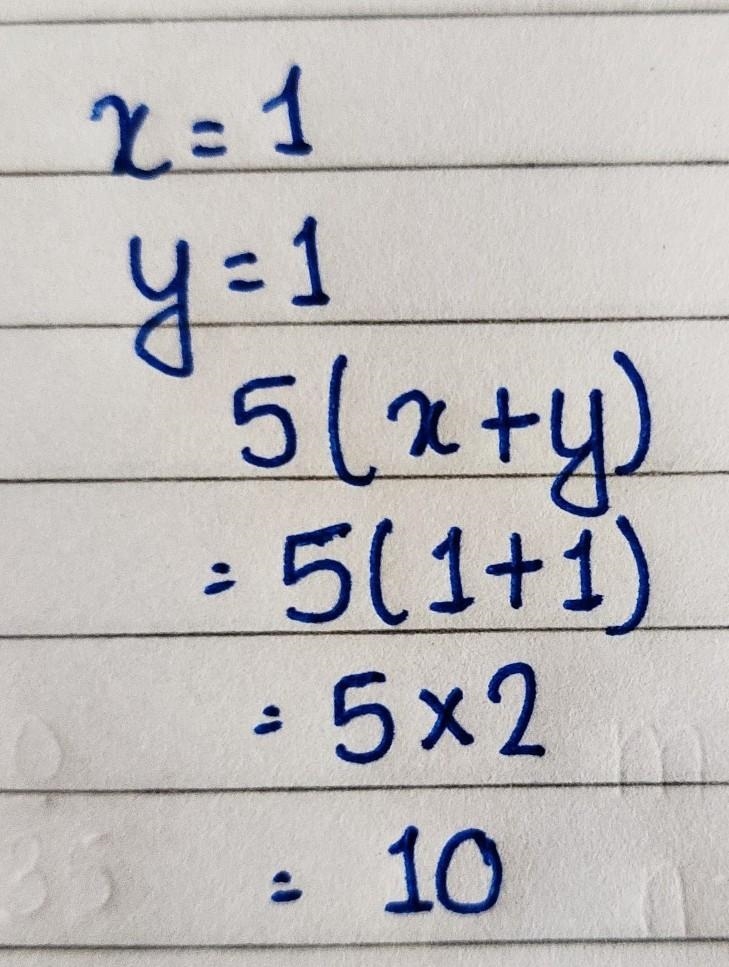 x = 1
y = 1
5(x+y)
= 5(1+1)
= 5×2
= 10